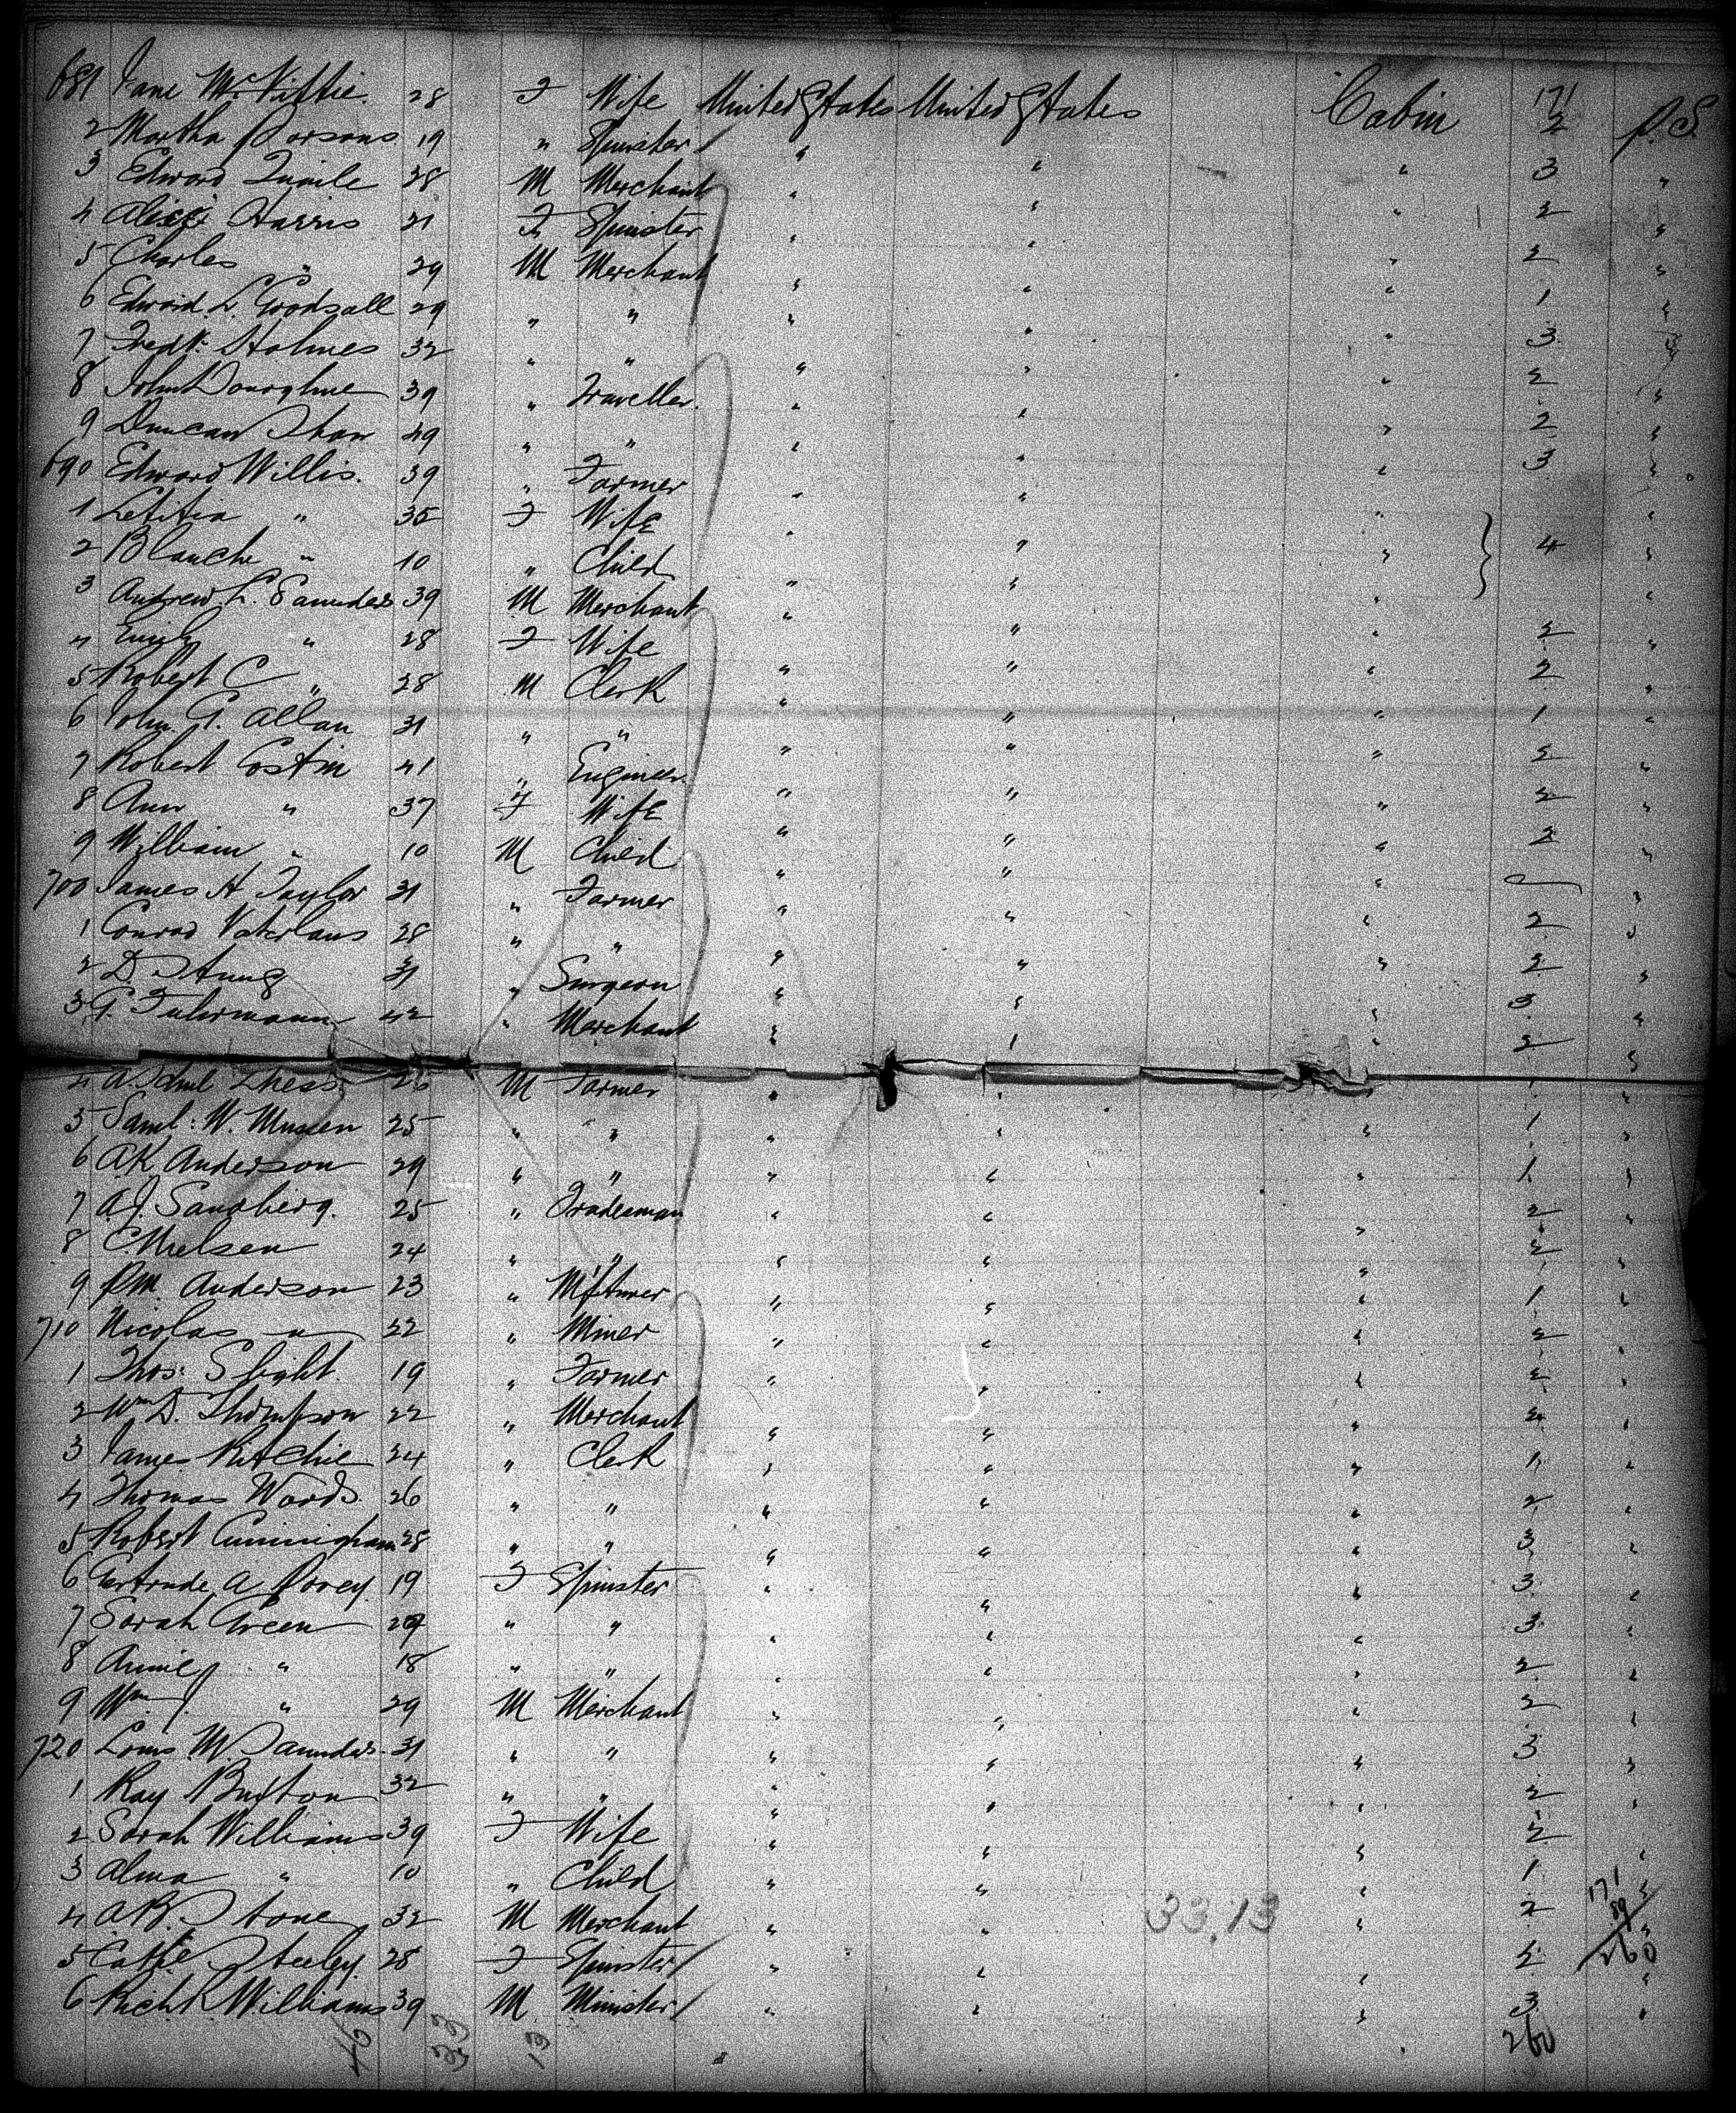 681 Jane 28 F Wife United States United States Cabin 171 2 P.S.
2 Martha Parsons 19 " Spinster " " " 3 "
3 Edward Quaile 28 M Merchant " " " 2 "
4 Harris 21 F Spinster " " " 2 "
5 Charles " 29 M Merchant " " " 1 "
6 Edward L. Goodsall 29 " " " " " 3 "
7 Fredk: Holmes 32 " " " " " 2 "
8 John Donoghue 39 " Traveller. " " " 2 "
9 Duncan Shaw 49 " " " " " 3 "
690 Edward Willis. 39 " Farmer " " "
1 Letitia " 35 F Wife " " " 4 "
2 Blanche " 10 " Child " " " "
3 Andrew L. Saunders 39 M Merchant " " " 2 "
4 Emily " 28 F Wife " " " 2 "
5 Robert C " 28 M Clerk " " " 1 "
6 John G. Allan 31 " " " " " 2 "
7 Robert Costin 41 " Engineer. " " " 2 "
8 Ann " 37 F Wife " " " 2 "
9 William " 10 M Child " " " "
700 James H Taylor 31 " Farmer " " " 2 "
1 Conrad Vaterlaus 28 " " " " " 2 "
2 D 31 " Surgeon " " " 3 "
3 G. Fuhrmann 42 " Merchant " " " 2 "
4 A. 26 M Farmer " " " "
5 Saml: W. Mussen 25 " " " " " 1 "
6 A.K Anderson 29 " " " " " 1 "
7 A.J. Sandberg. 25 " Tradesman " " " 2 "
8 C. Nielsen 24 " " " " " 2 "
9 P.M. Anderson 23 " M'fturer " " " 1 "
710 Nicolas " 22 " Miner " " " 2 "
1 Thos: Slight. 19 " Farmer " " " 2 "
2 Wm D. Thompson 22 " Merchant " " " 2 "
3 James Ritchie 24 " Clerk " " " 1 "
4 Thomas Woods. 26 " " " " " 2 "
5 Robert Cunningham 28 " " " " " 3 "
6 Gertrude A Povey 19 F Spinster " " " 3 "
7 Sarah Green 29 " " " " " 3 "
8 Annie " 18 " " " " " 2 "
9 Wm J. " 29 M Merchant " " " 2 "
720 Louis M. Saunders 31 " " " " " 3 "
1 Ray Buxton 32 " " " " " 2 "
2 Sarah Williams 39 F Wife " " " 2 "
3 Alma " 10 " Child " " " 1 171 "
4 A.B. Stone 32 M Merchant " " 33.13 " 2 89 "
5 Cathe Steeley 28 F Spinster " " " 2 260 "
6 Richd Williams 39 M Minister " " " 3 "
46 13 260